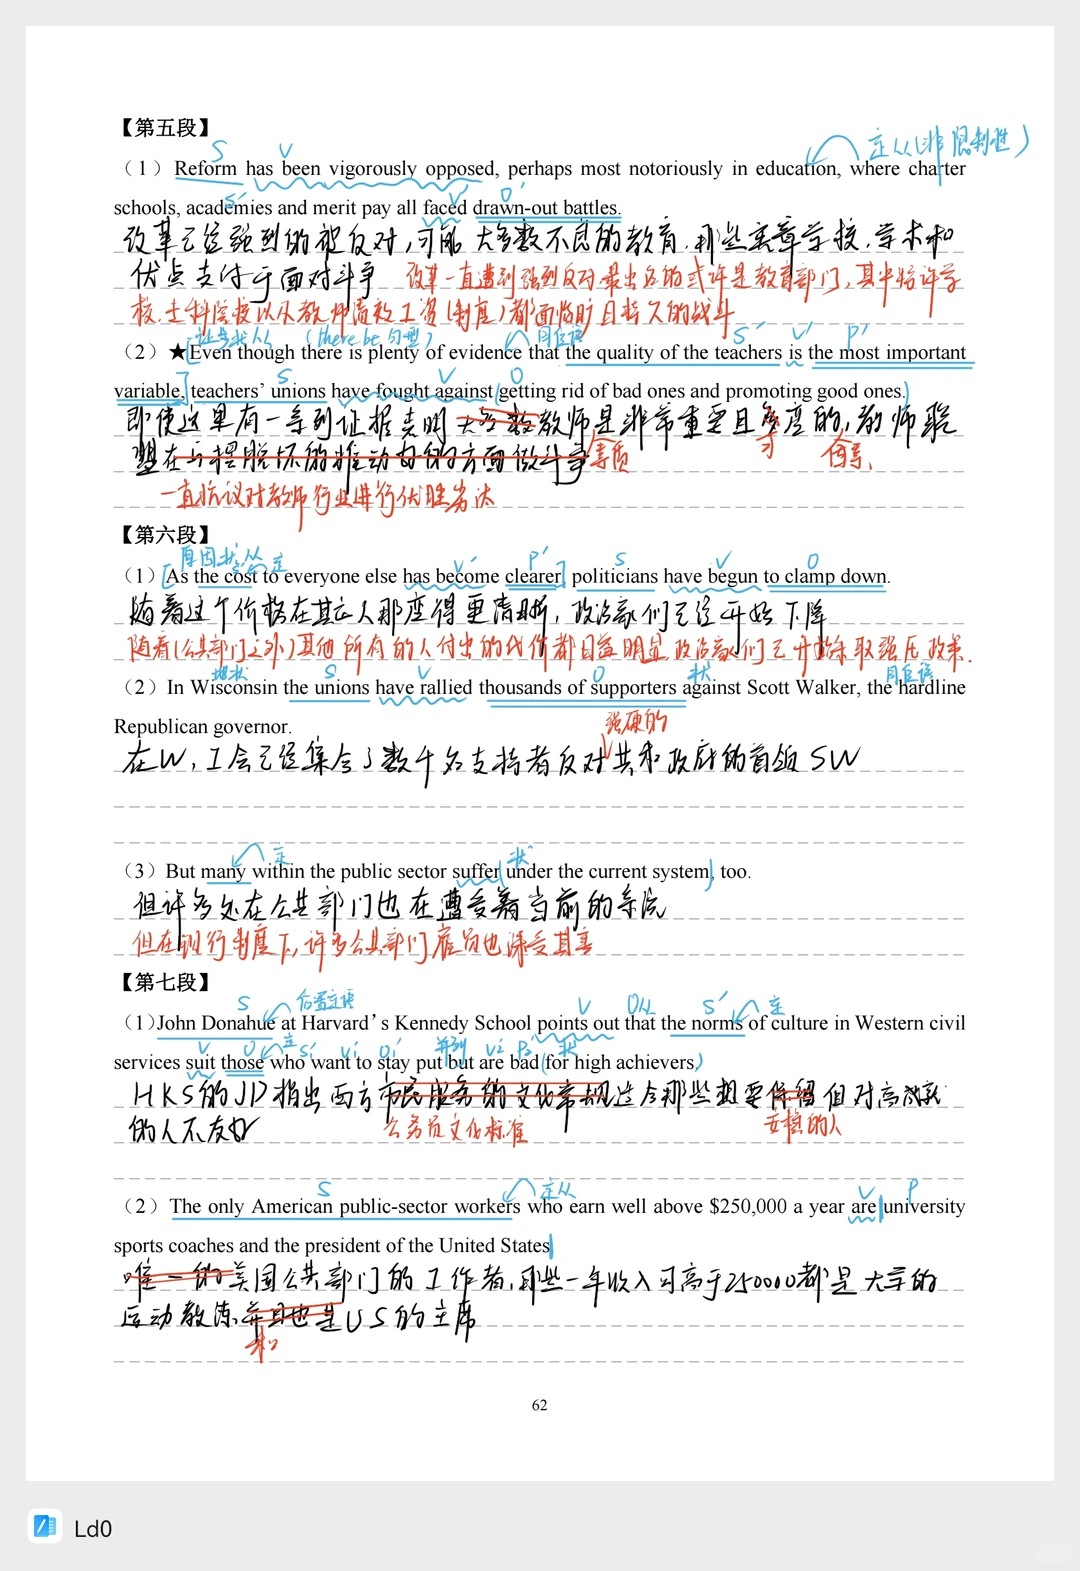 【第五段】
S V 定从(非限制性)
（1）Reform has been vigorously opposed, perhaps most notoriously in education, where charter
S' V' O'
schools, academies and merit pay all faced drawn-out battles.
改革已经强烈的被反对,可能大多数不良的教育.那些宪章学校.学术和
优点支付于面对斗争 改革一直遭到强烈反对最出名的或许是教育部门,其中特许学
校.士科院校以及教师绩效工资(制度)都面临旷日持久的战斗
让步状从 (there be句型) 同位语 S' V' P'
（2）★Even though there is plenty of evidence that the quality of the teachers is the most important
S V O
variable, teachers’ unions have fought against getting rid of bad ones and promoting good ones.
即使这里有一系列证据表明大多数教师是非常重要且多变的,教师联
盟在与摆脱坏的推动好的方面做斗争 素质
一直抗议对教师行业进行优胜劣汰
【第六段】
原因状从 定 V' P' S V O
（1）As the cost to everyone else has become clearer, politicians have begun to clamp down.
随着这个价格在其它人那变得更清晰,政治家们已经开始下降
随着(公共部门之外)其他所有的人付出的代价都日益明显政治家们已开始采取强压政策.
地状 S V O 状 同位语
（2）In Wisconsin the unions have rallied thousands of supporters against Scott Walker, the hardline
Republican governor.
强硬的
在W,工会已经集合了数千名支持者反对共和政府的首领SW
定 状
（3）But many within the public sector suffer under the current system, too.
但许多处在公共部门也在遭受着当前的系统
但在现行制度下,许多公共部门雇员也深受其害
【第七段】
S 后置定语 V O从 S' 定
（1）John Donahue at Harvard’s Kennedy School points out that the norms of culture in Western civil
V O 定 S' V1 O1' 并列 V2 P2' 状
services suit those who want to stay put but are bad for high achievers.
HKS的JD指出西方市民服务的文化常规适合那些想要保留但对高成就
的人不友好 公务员文化标准 安稳的人
S 定从 V P
（2）The only American public-sector workers who earn well above $250,000 a year are university
sports coaches and the president of the United States
唯一的美国公共部门的工作者,那些一年收入可高于250000都是大学的
运动教练并且也是US的主席
和
62
Ld0